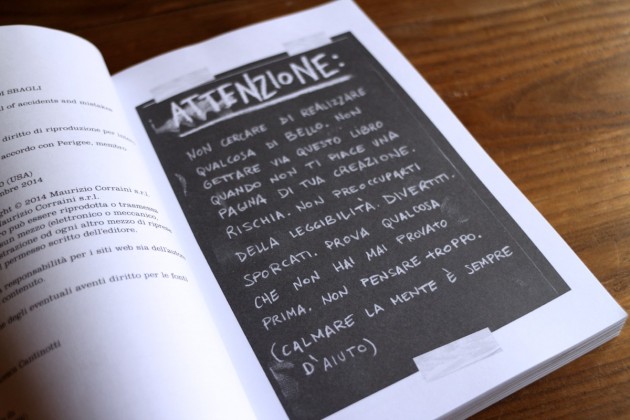 I SBAGLI
l of accidents and mistakes
diritto di riproduzione per
accordo con Perigee, membro
(USA)
mbre 2014
ght © 2014 Maurizio Corraini s.r.l.
Maurizio Corraini s.r.l.
o può essere riprodotta o trasmessa
sun mezzo (elettronico o meccanico,
istrazione od ogni altro mezzo di
permesso scritto dell'editore.
responsabilità per i siti web sia dell'autore
contenuto.
degli eventuali aventi diritto per le fonti
ATTENZIONE:
NON CERCARE DI REALIZZARE
QUALCOSA DI BELLO. NON
GETTARE VIA QUESTO LIBRO
QUANDO NON TI PIACE UNA
PAGINA DI TUA CREAZIONE.
RISCHIA. NON PREOCCUPARTI
DELLA LEGGIBILITÀ. DIVERTITI.
SPORCATI. PROVA QUALCOSA
CHE NON HAI MAI PROVATO
PRIMA. NON PENSARE TROPPO.
(CALMARE LA MENTE È SEMPRE
D'AIUTO)